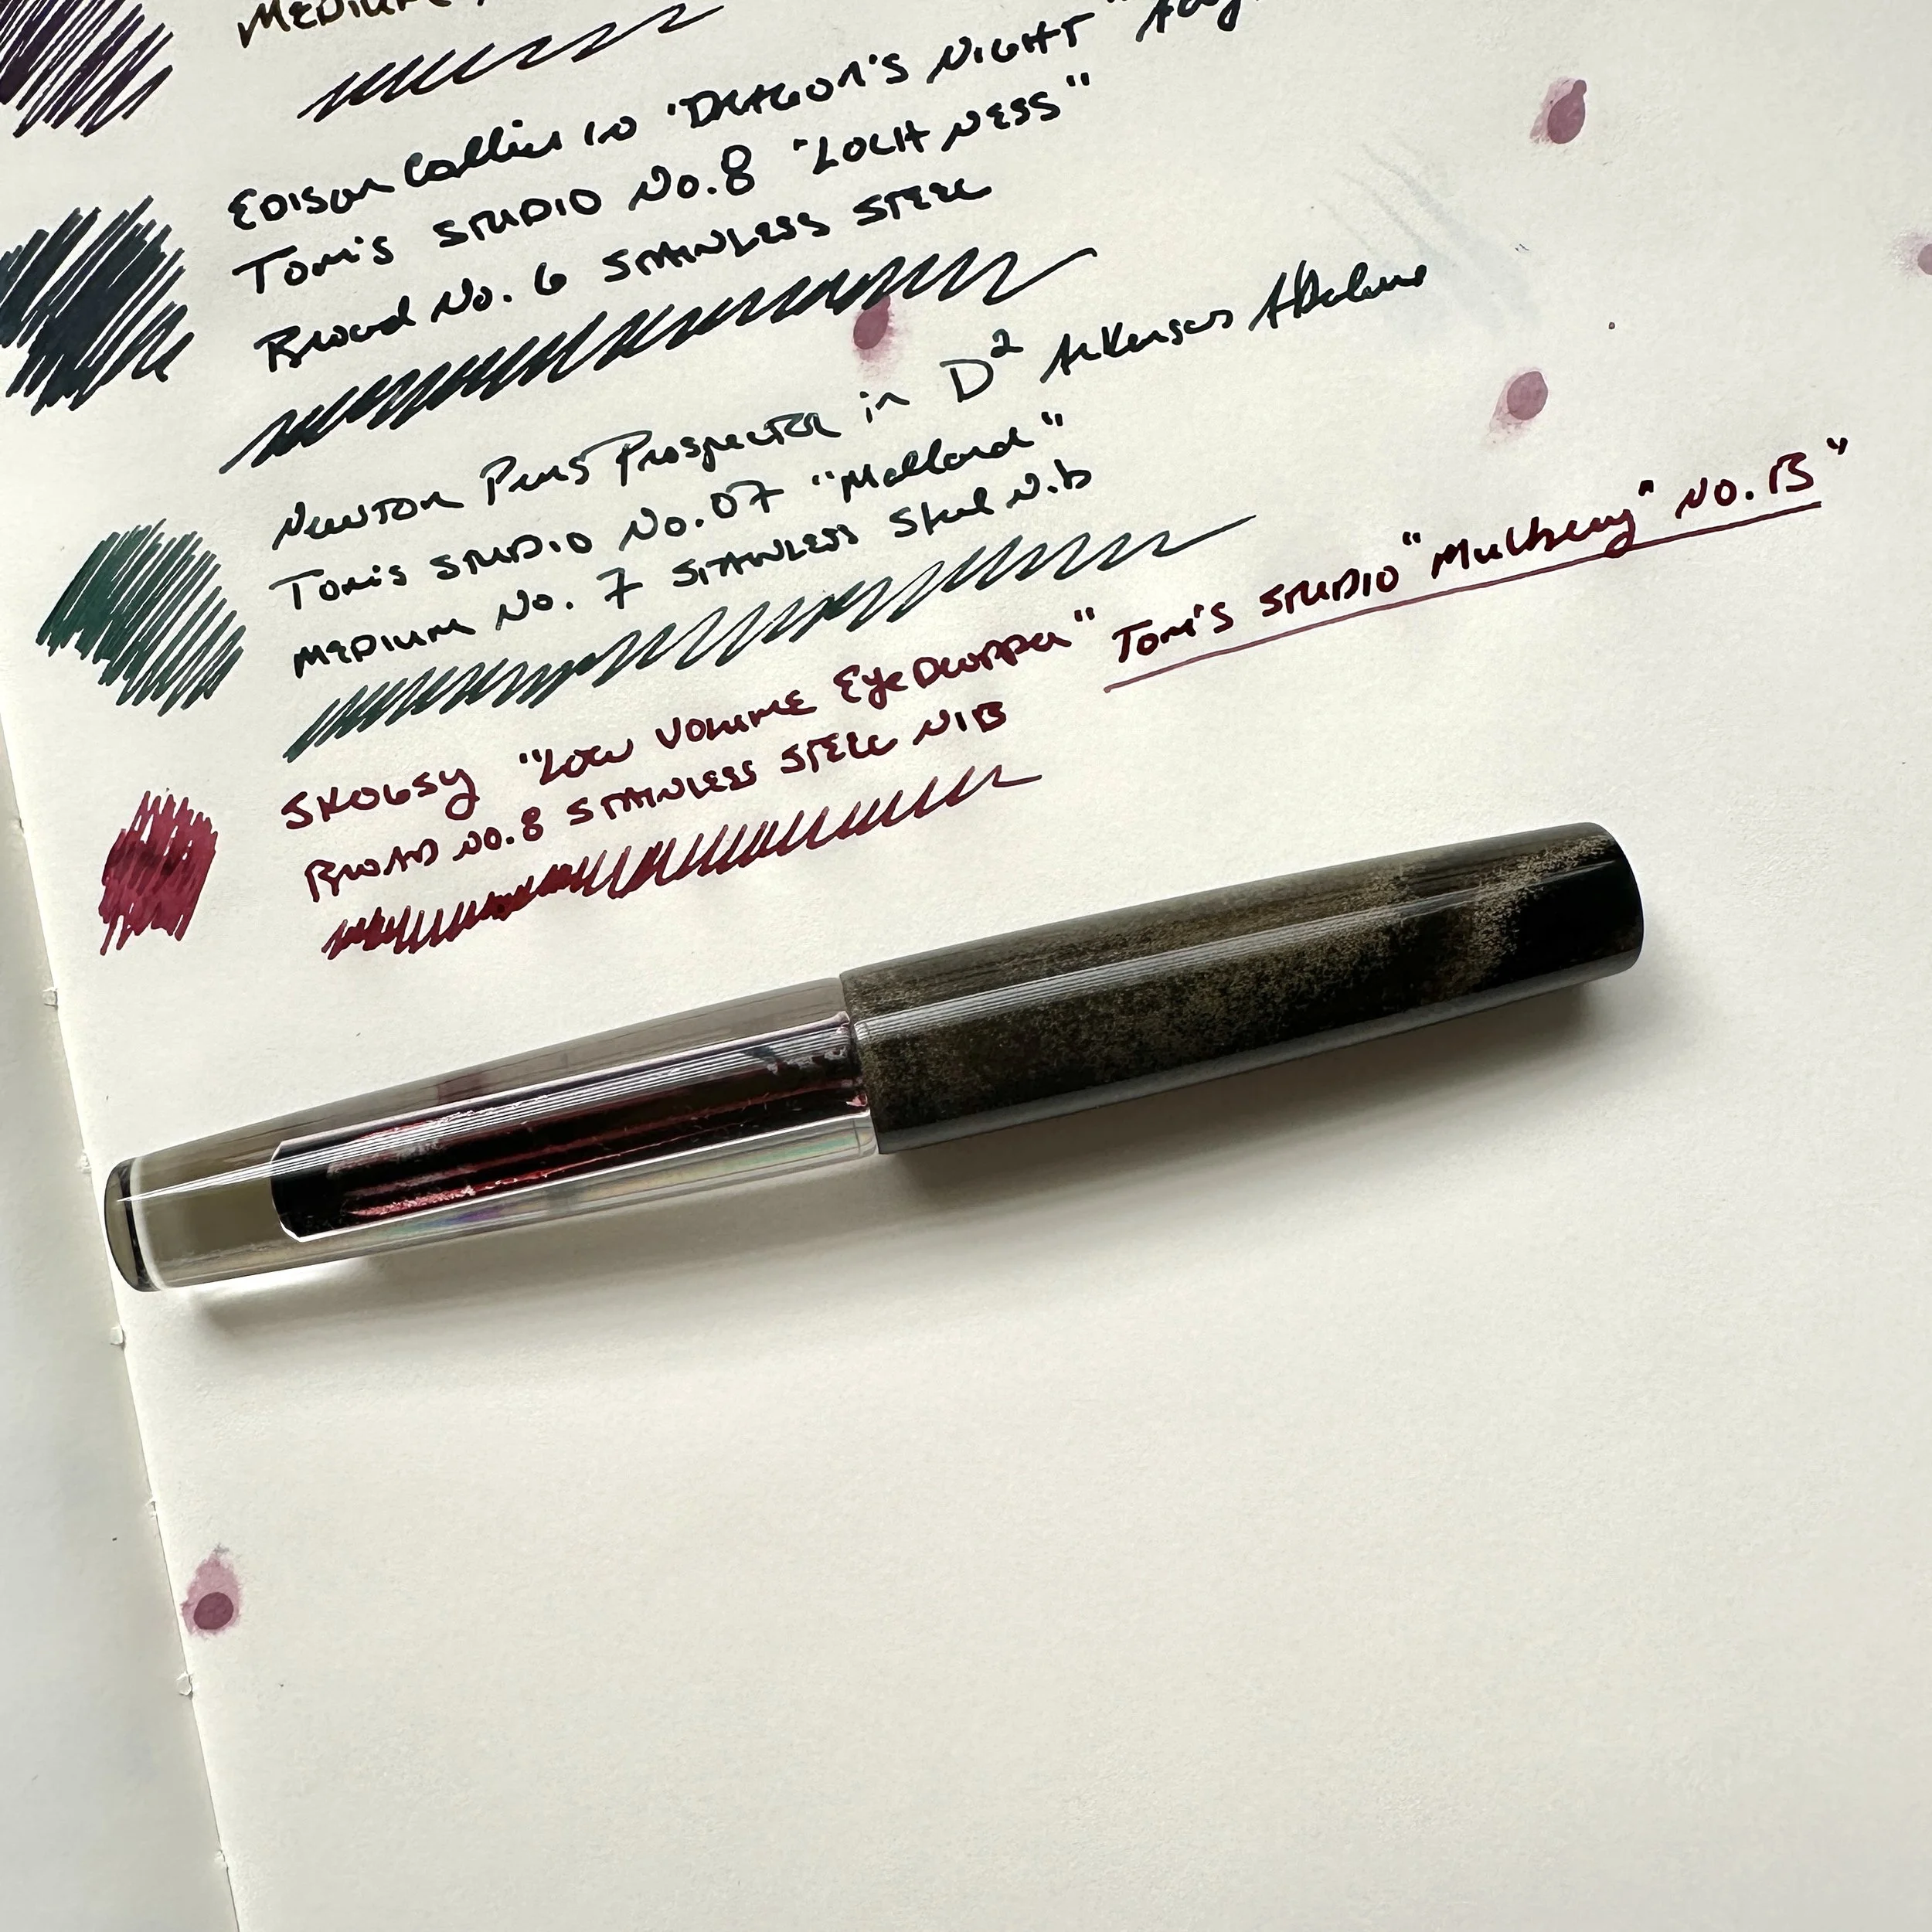 MEDIUM
EDISON Collier in "DRAGON'S NIGHT"
Tom's STUDIO No.8 "LOCH NESS"
Broad No. 6 STAINLESS STEEL
NEWTON Pens Prospector in D² Arkansas Abalone
Tom's STUDIO No.07 "Mallard"
MEDIUM No. 7 STAINLESS Steel Nib
SKOGSY "LOW VOLUME EyeDropper" Tom's STUDIO "Mulberry" NO. 13"
BROAD No.8 STAINLESS STEEL NIB